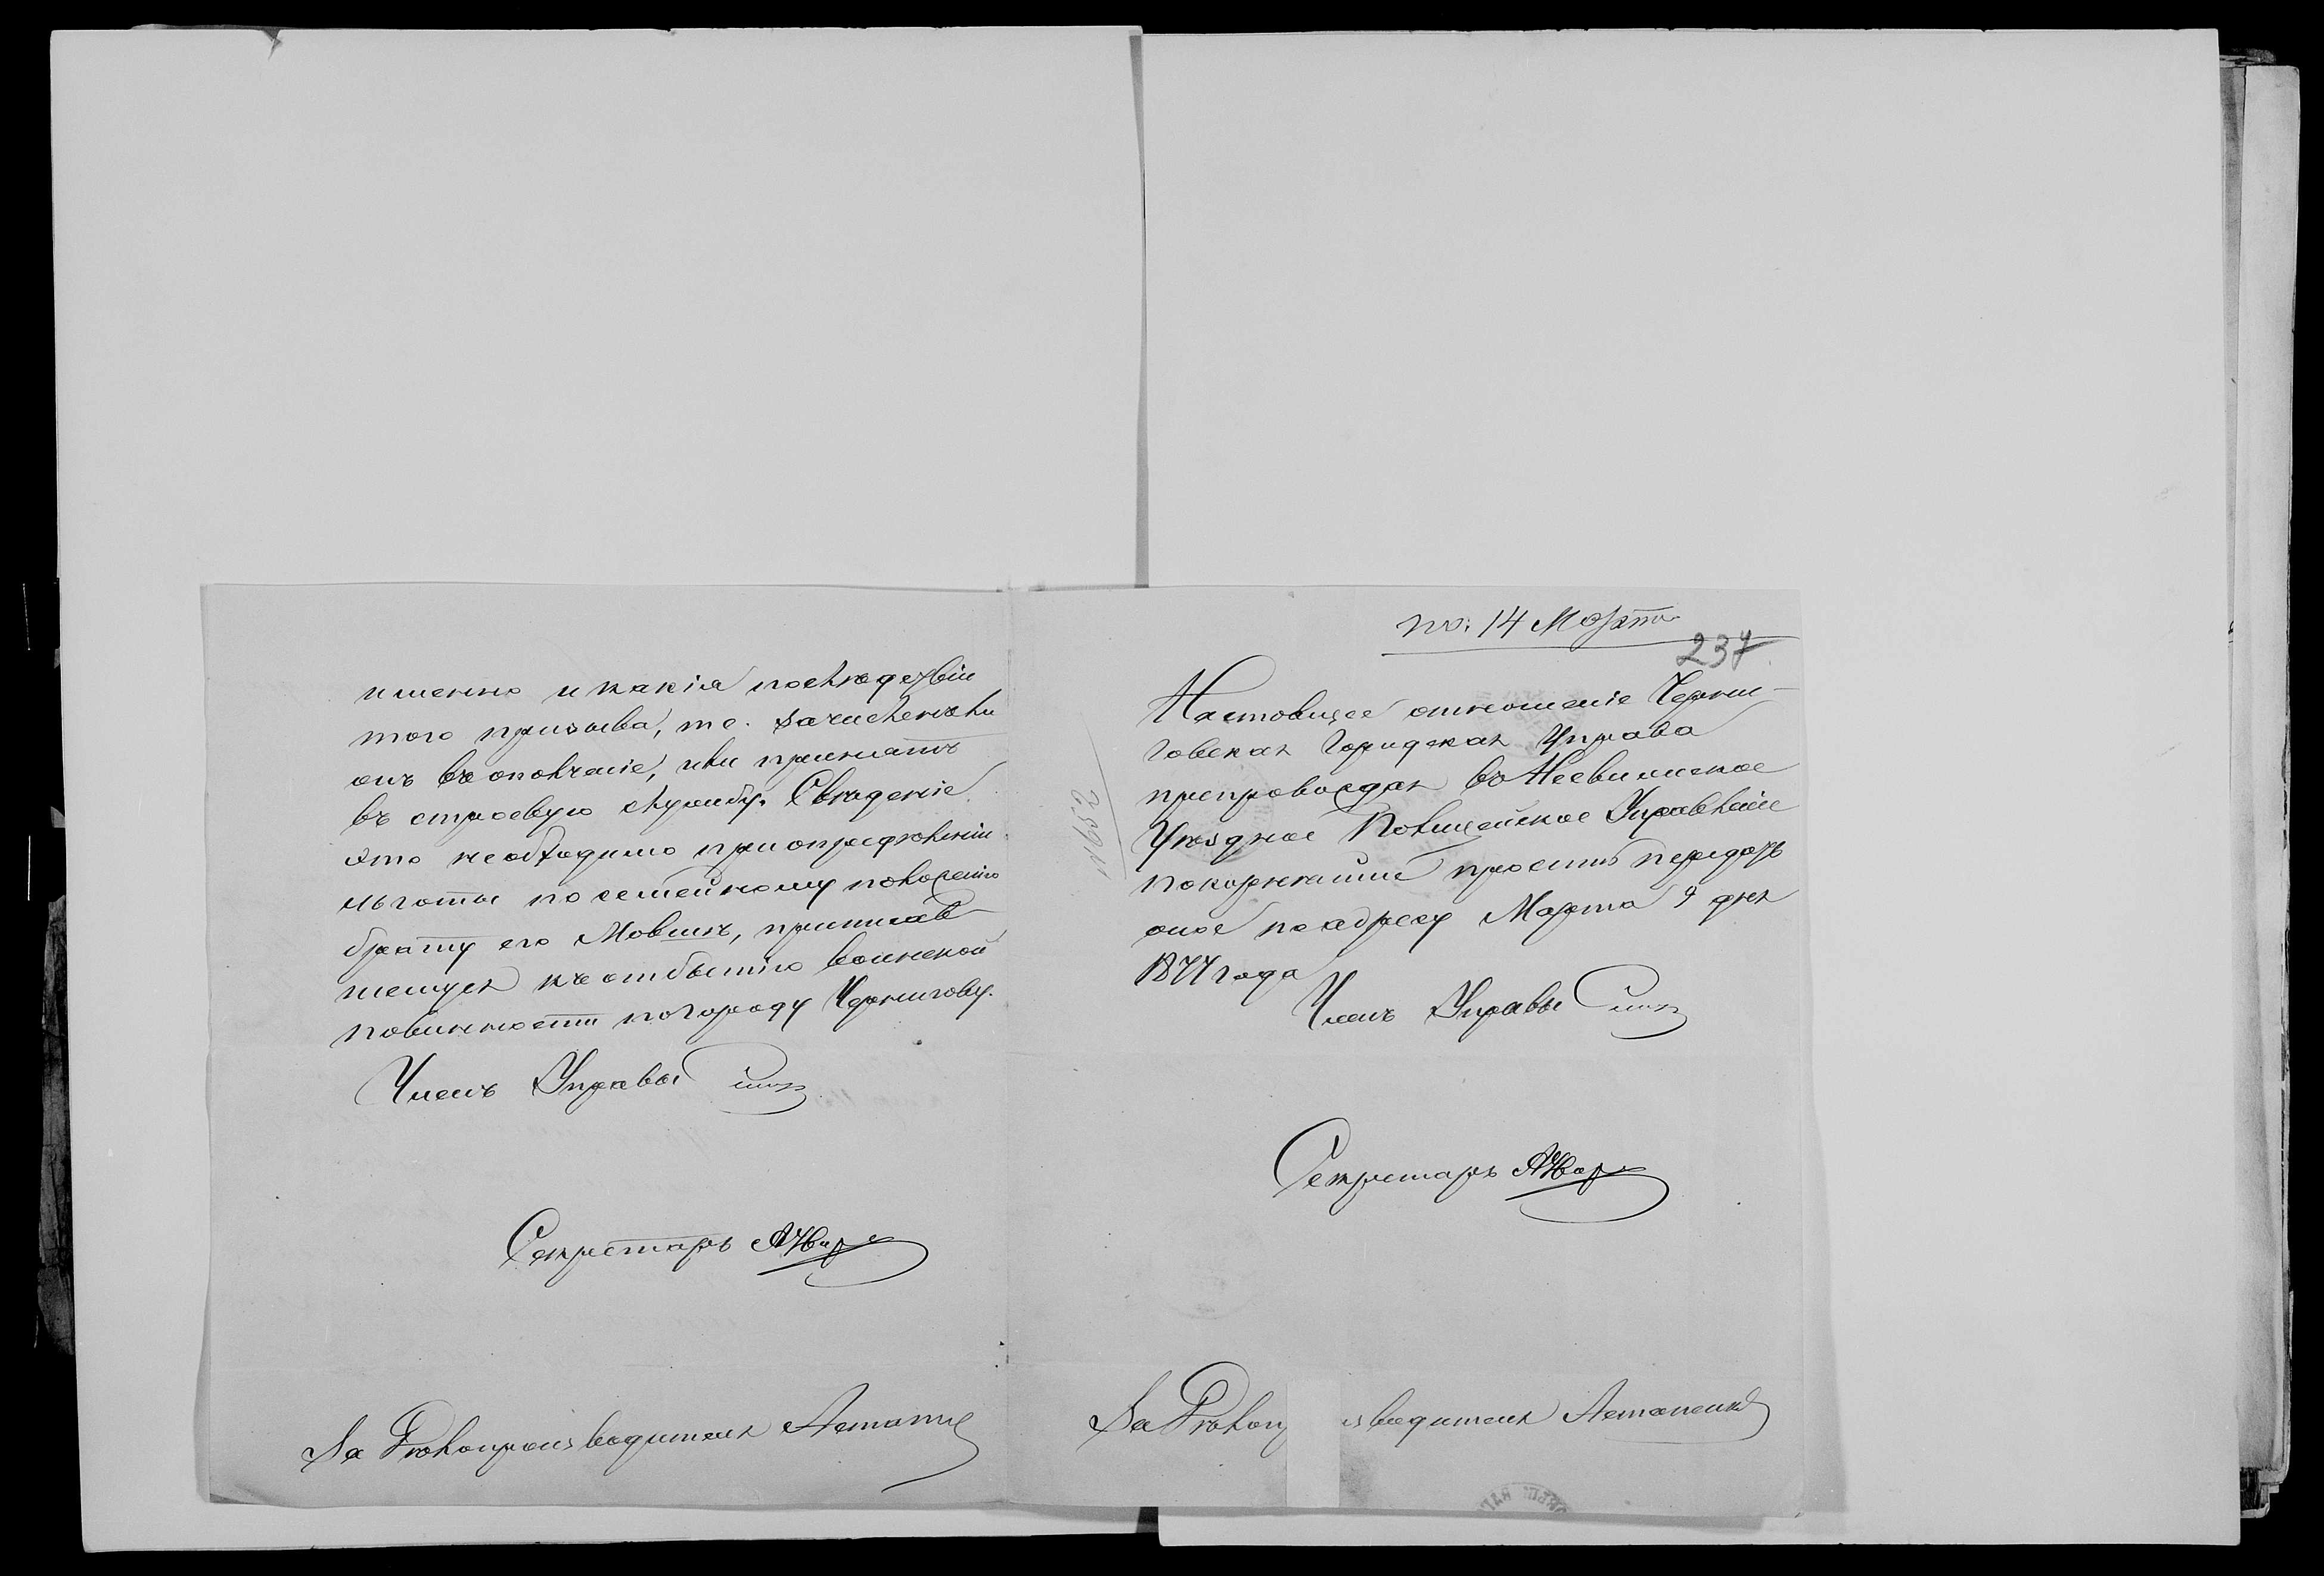 именно и какія послѣдствіи
того призыва, т е. зачисленъ ли
онъ въ ополченіе, или принятъ
въ строевую службу. Свѣденіе
это необходимо при опредѣленіи
льготы по семейному положенію
брату его Мовшѣ, приписав-
шемуся къ отбытію воинской
повинности по городу Чернигову.
Членъ Управы
Секретарь
За Дѣлопроизводителя
по: 14 Марта
237
Настоящее отношеніе Черни-
говская Городская Управа
препровождая въ
Уѣздное Полицейское Управленіе
покорнѣйше проситъ передать
оное по адресу Марта 9 дня
1877 года
Членъ Управы
Секретарь
За Дѣлопр изводителя